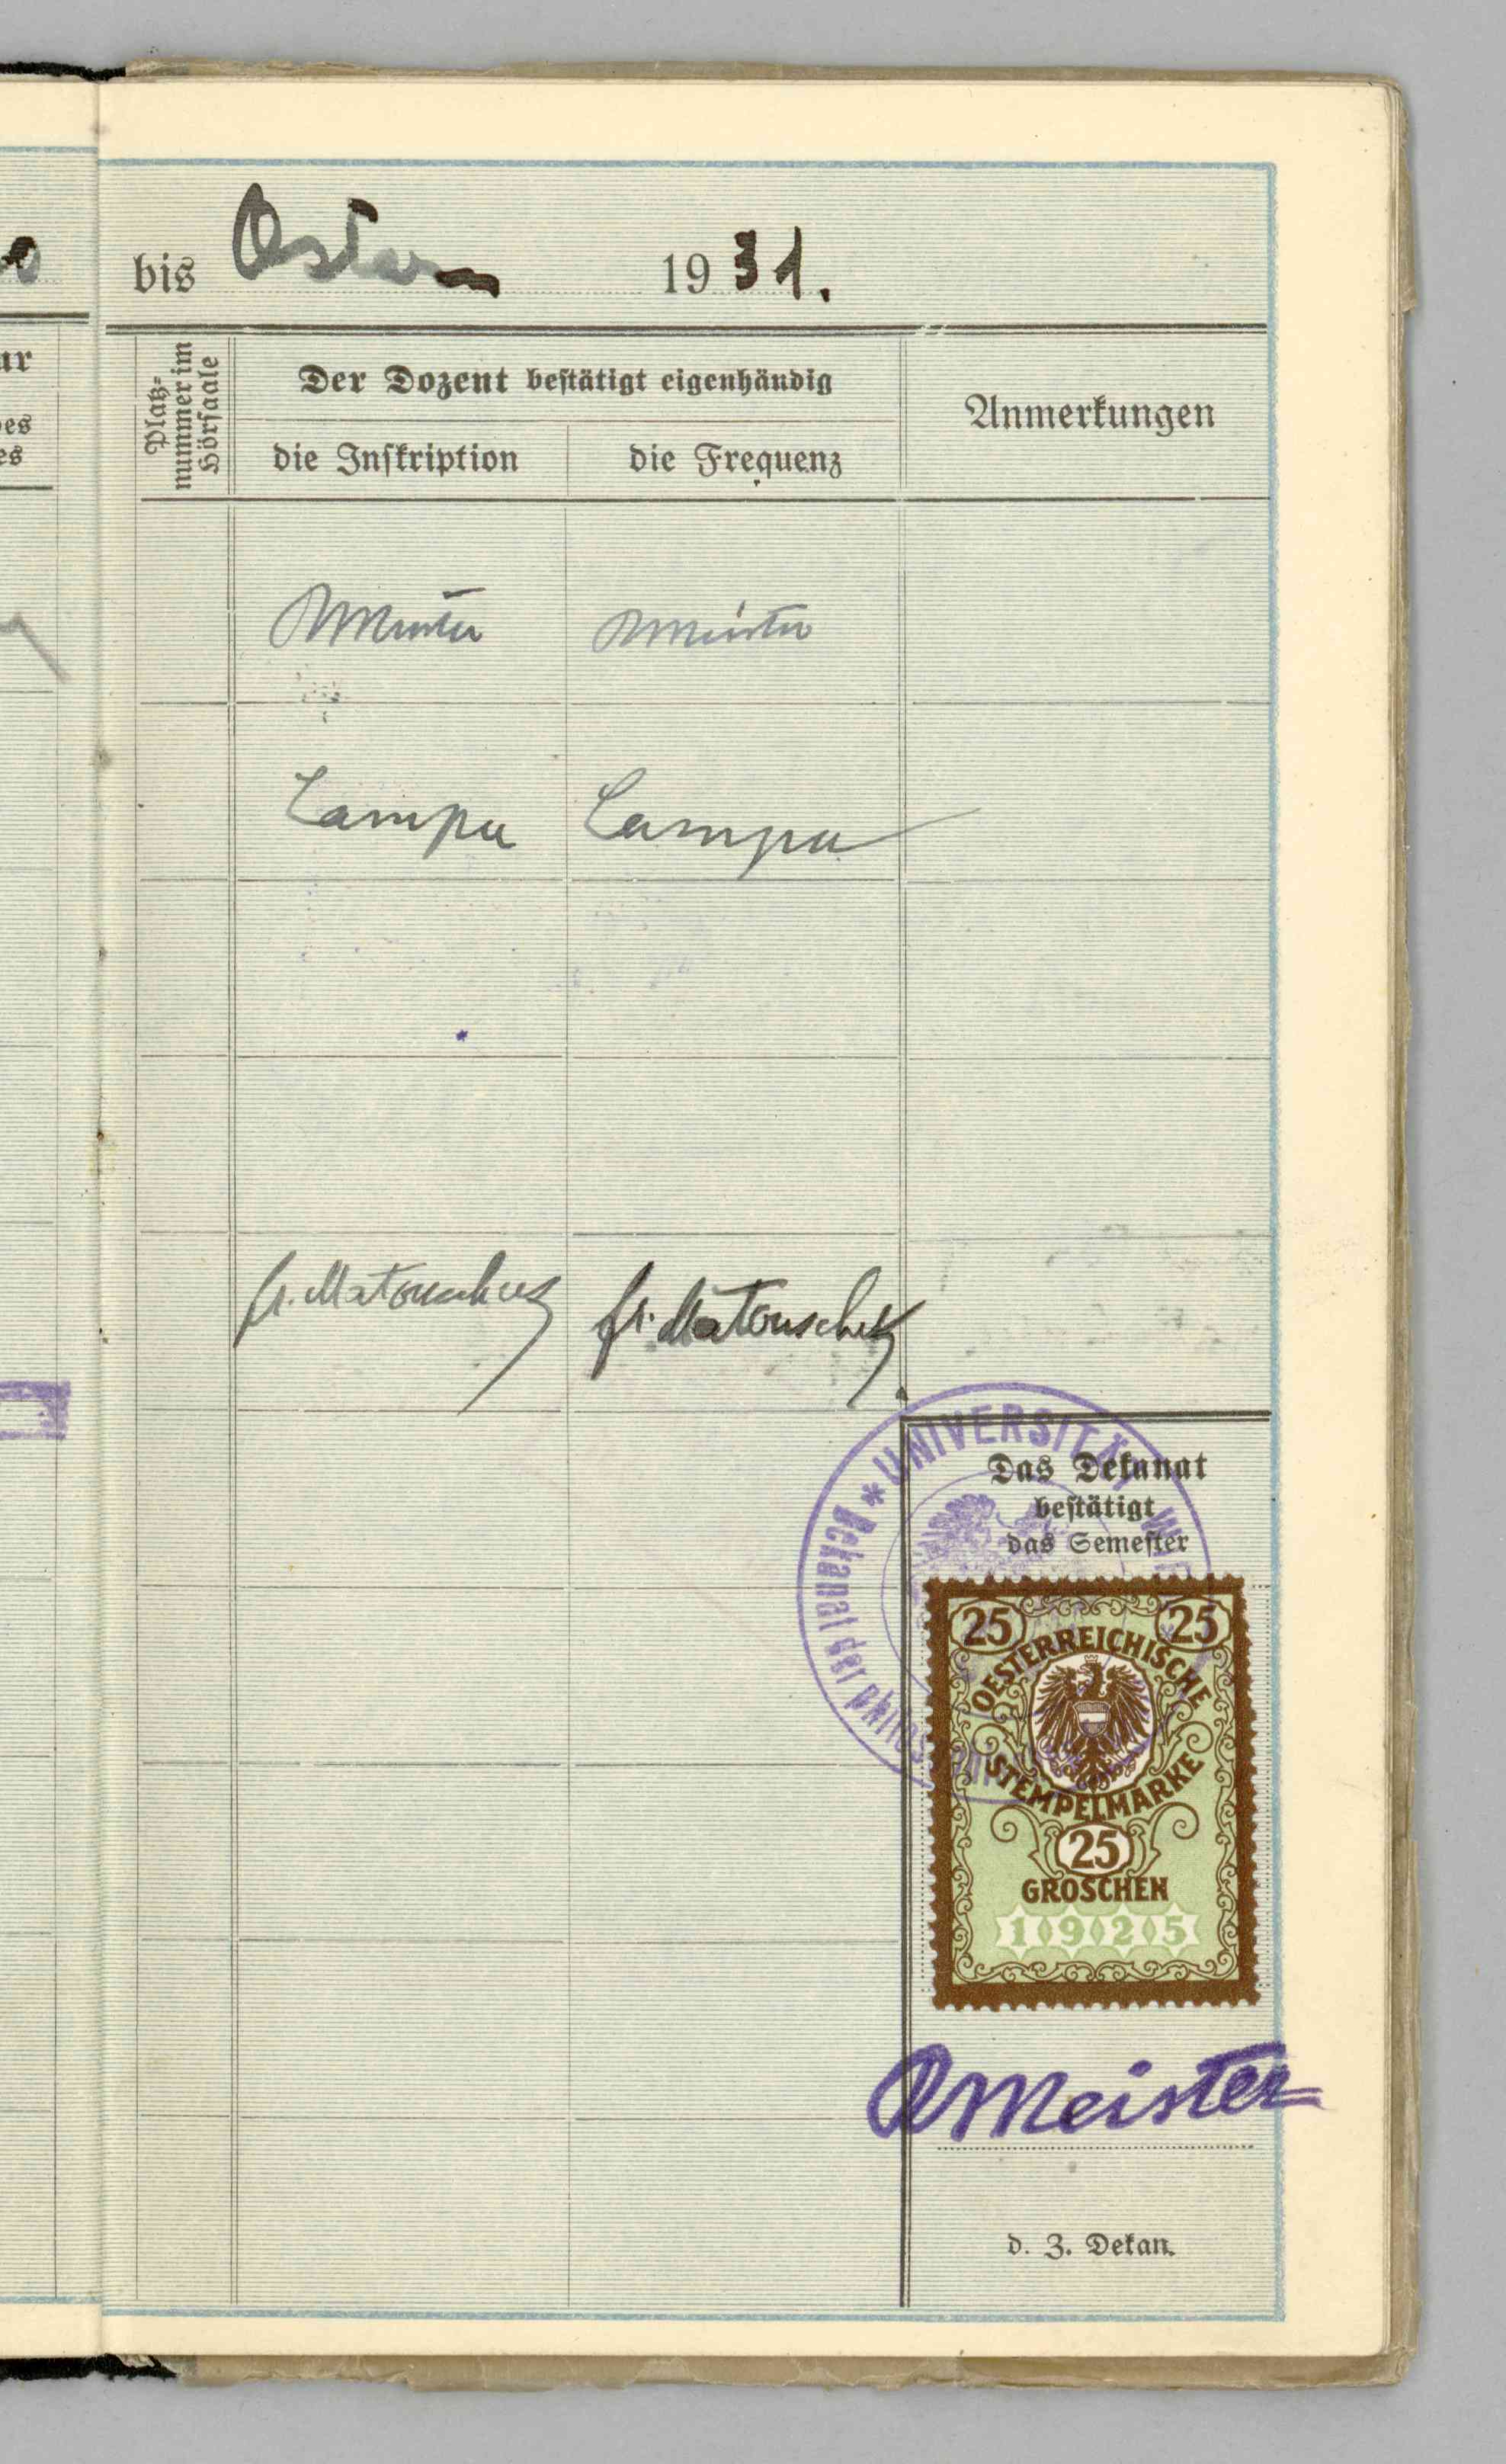 bis Ostern 1931.
Platz-
nummer im
Hörsaale
Der Dozent bestätigt eigenhändig
die Inskription
die Frequenz
Anmerkungen
RMeister RMeister
Lampa Lampa
Fr. Matouschek Fr. Matouschek
* UNIVERSITÄT WIE
Dekanat der philos
Das Dekanat
bestätigt
das Semester
25 25
OESTERREICHISCHE
STEMPELMARKE
25
GROSCHEN
1925
RMeister
d. Z. Dekan.